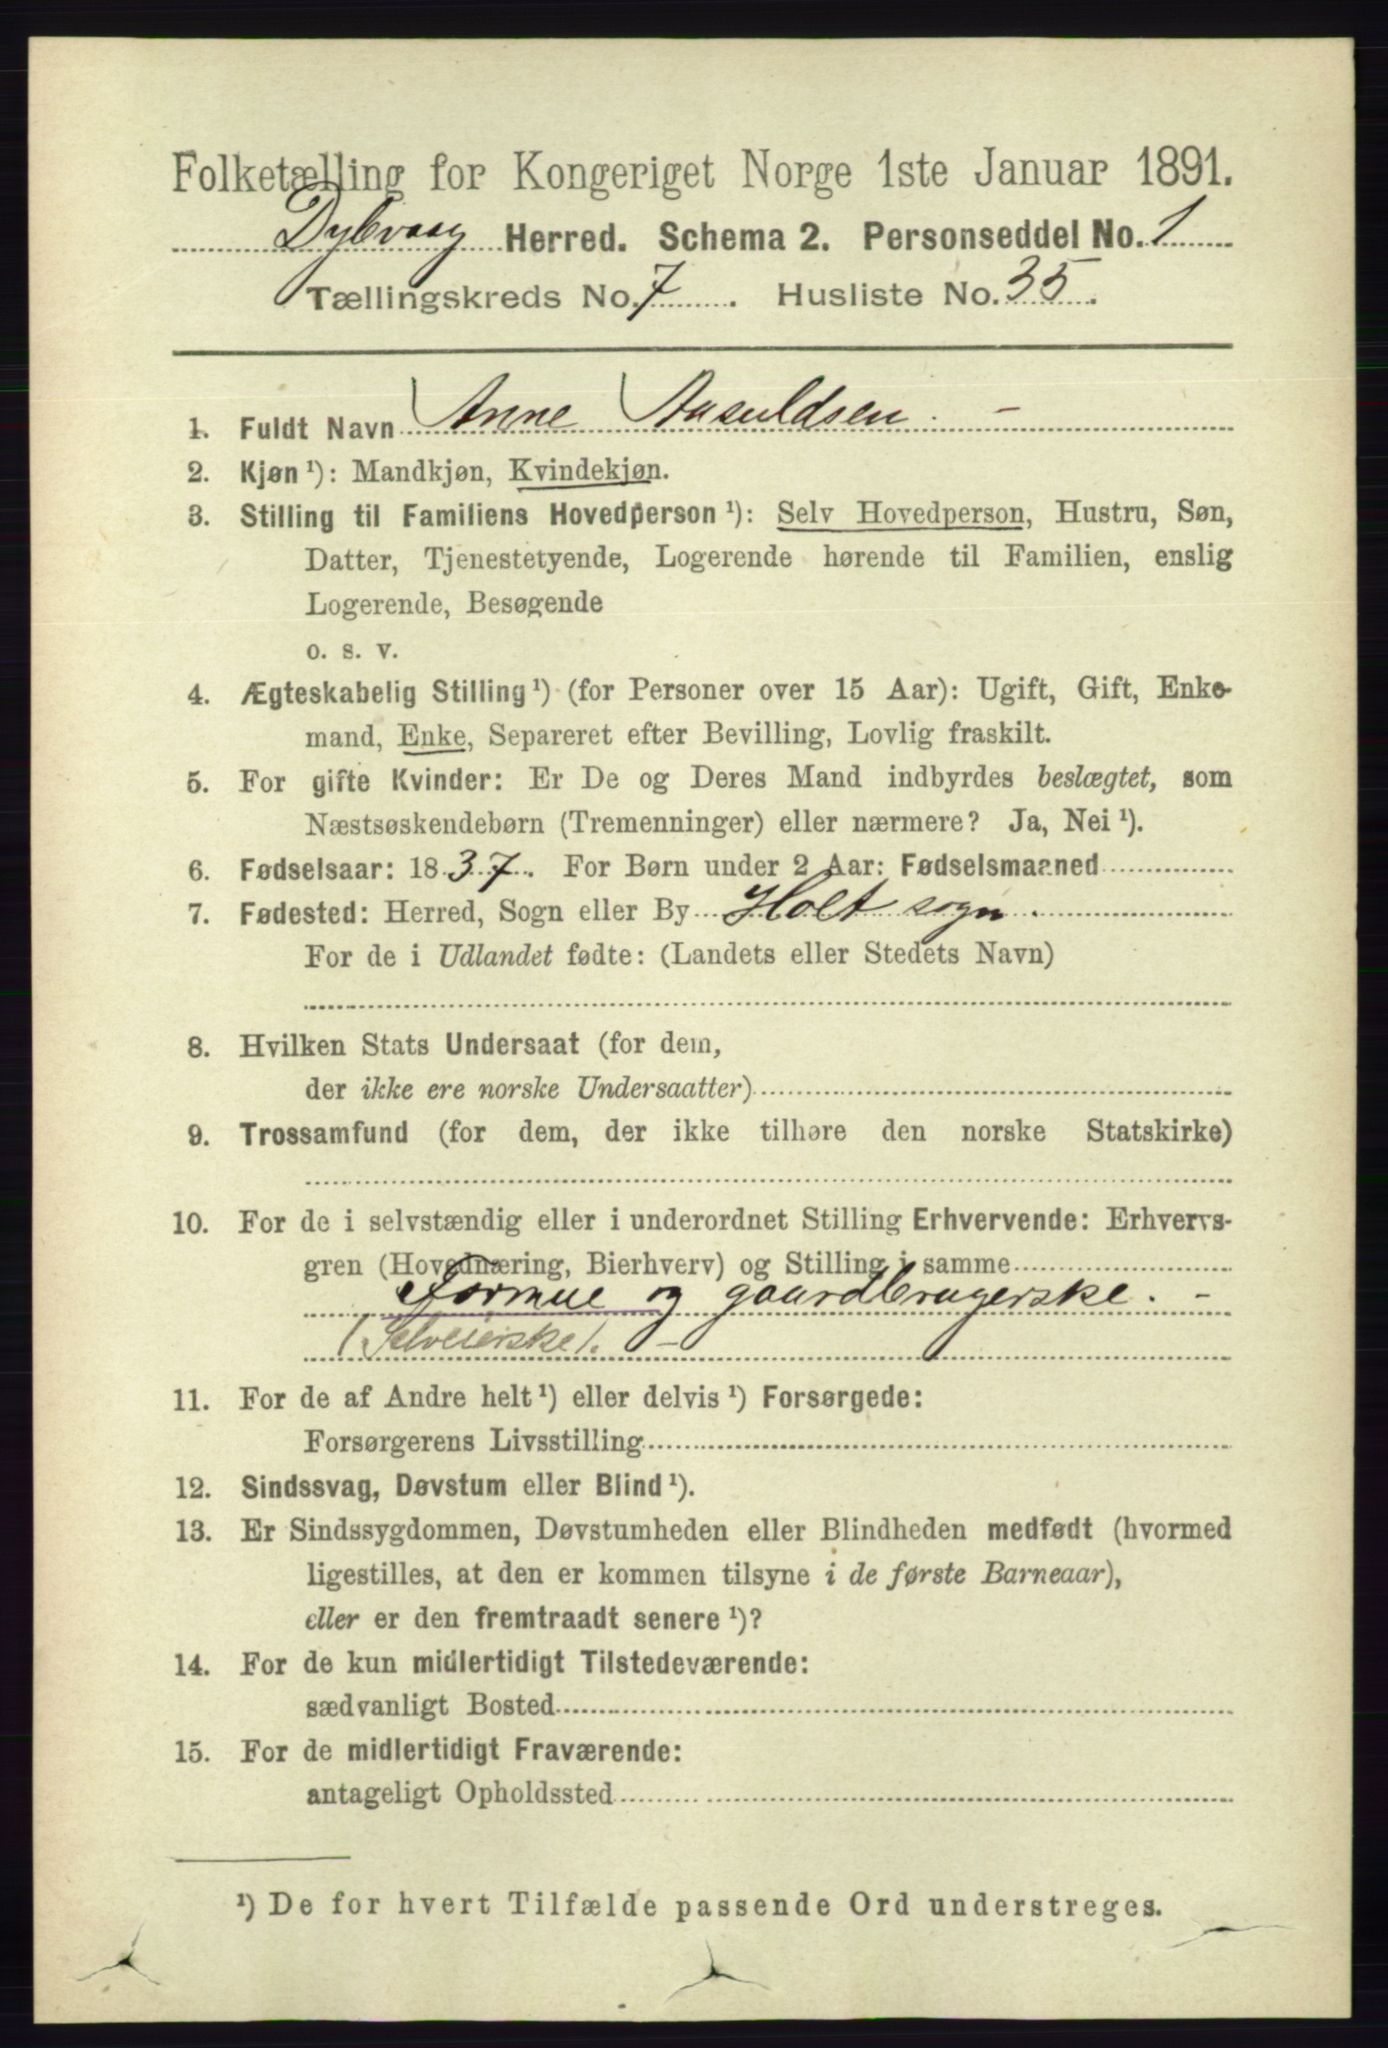 Folketælling for Kongeriget Norge 1ste Januar 1891.
Dybvaag Herred. Schema 2. Personseddel No. 1
Tællingskreds No. 7. Husliste No. 35.
1. Fuldt Navn Anne Aasuldsen. -
2. Kjøn ¹): Mandkjøn, Kvindekjøn.
3. Stilling til Familiens Hovedperson ¹): Selv Hovedperson, Hustru, Søn,
Datter, Tjenestetyende, Logerende hørende til Familien, enslig
Logerende, Besøgende
o. s. v.
4. Ægteskabelig Stilling ¹) (for Personer over 15 Aar): Ugift, Gift, Enke-
mand, Enke, Separeret efter Bevilling, Lovlig fraskilt.
5. For gifte Kvinder: Er De og Deres Mand indbyrdes beslægtet, som
Næstsøskendebørn (Tremenninger) eller nærmere? Ja, Nei ¹).
6. Fødselsaar: 1837. For Børn under 2 Aar: Fødselsmaaned
7. Fødested: Herred, Sogn eller By Holt sogn.
For de i Udlandet fødte: (Landets eller Stedets Navn)
8. Hvilken Stats Undersaat (for dem,
der ikke ere norske Undersaatter)
9. Trossamfund (for dem, der ikke tilhøre den norske Statskirke)
10. For de i selvstændig eller i underordnet Stilling Erhvervende: Erhvervs-
gren (Hovednæring, Bierhverv) og Stilling i samme
Formue og gaardbrugerske. -
(Selveierske). -
11. For de af Andre helt ¹) eller delvis ¹) Forsørgede:
Forsørgerens Livsstilling
12. Sindssvag, Døvstum eller Blind ¹).
13. Er Sindssygdommen, Døvstumheden eller Blindheden medfødt (hvormed
ligestilles, at den er kommen tilsyne i de første Barneaar),
eller er den fremtraadt senere ¹)?
14. For de kun midlertidigt Tilstedeværende:
sædvanligt Bosted
15. For de midlertidigt Fraværende:
antageligt Opholdssted
¹) De for hvert Tilfælde passende Ord understreges.